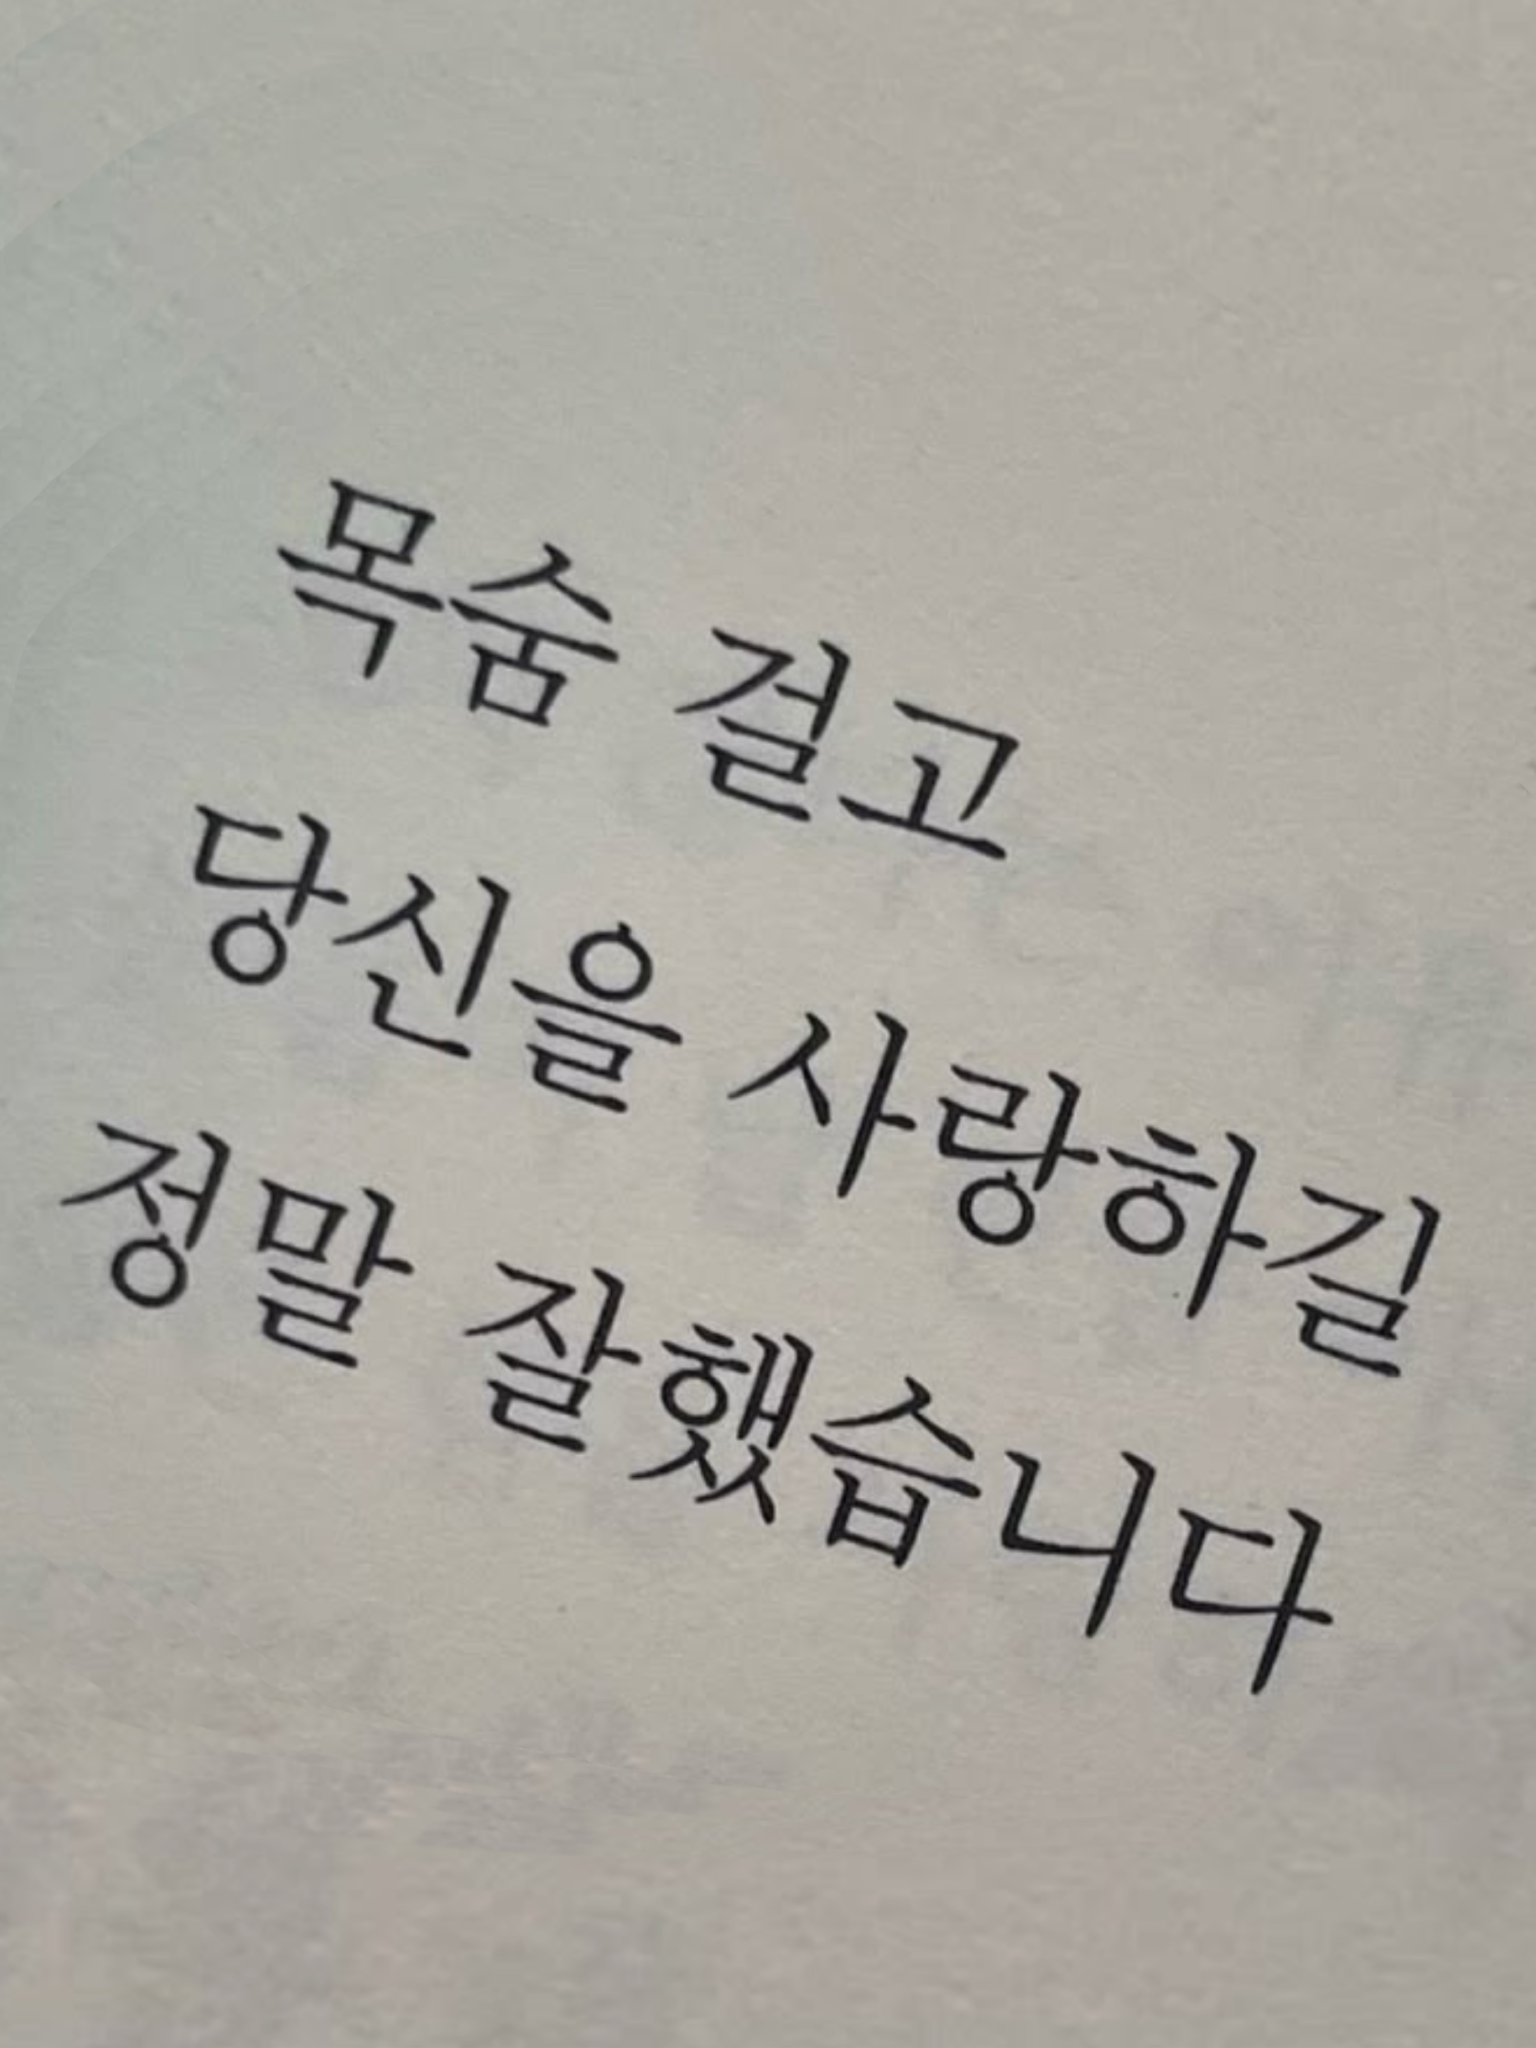 목숨 걸고
당신을 사랑하길
정말 잘했습니다